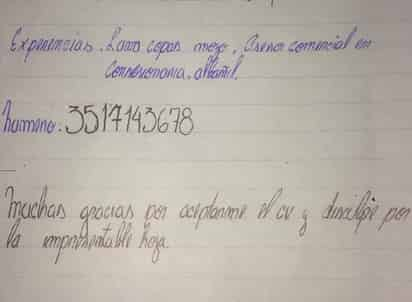 Experiencias. Lava copas mozo, Asesor comercial en
Consesionaria. albañil.
humero: 3517143678
muchas gracias por aceptarme el cv y disculpe por
la impresentable hoja.